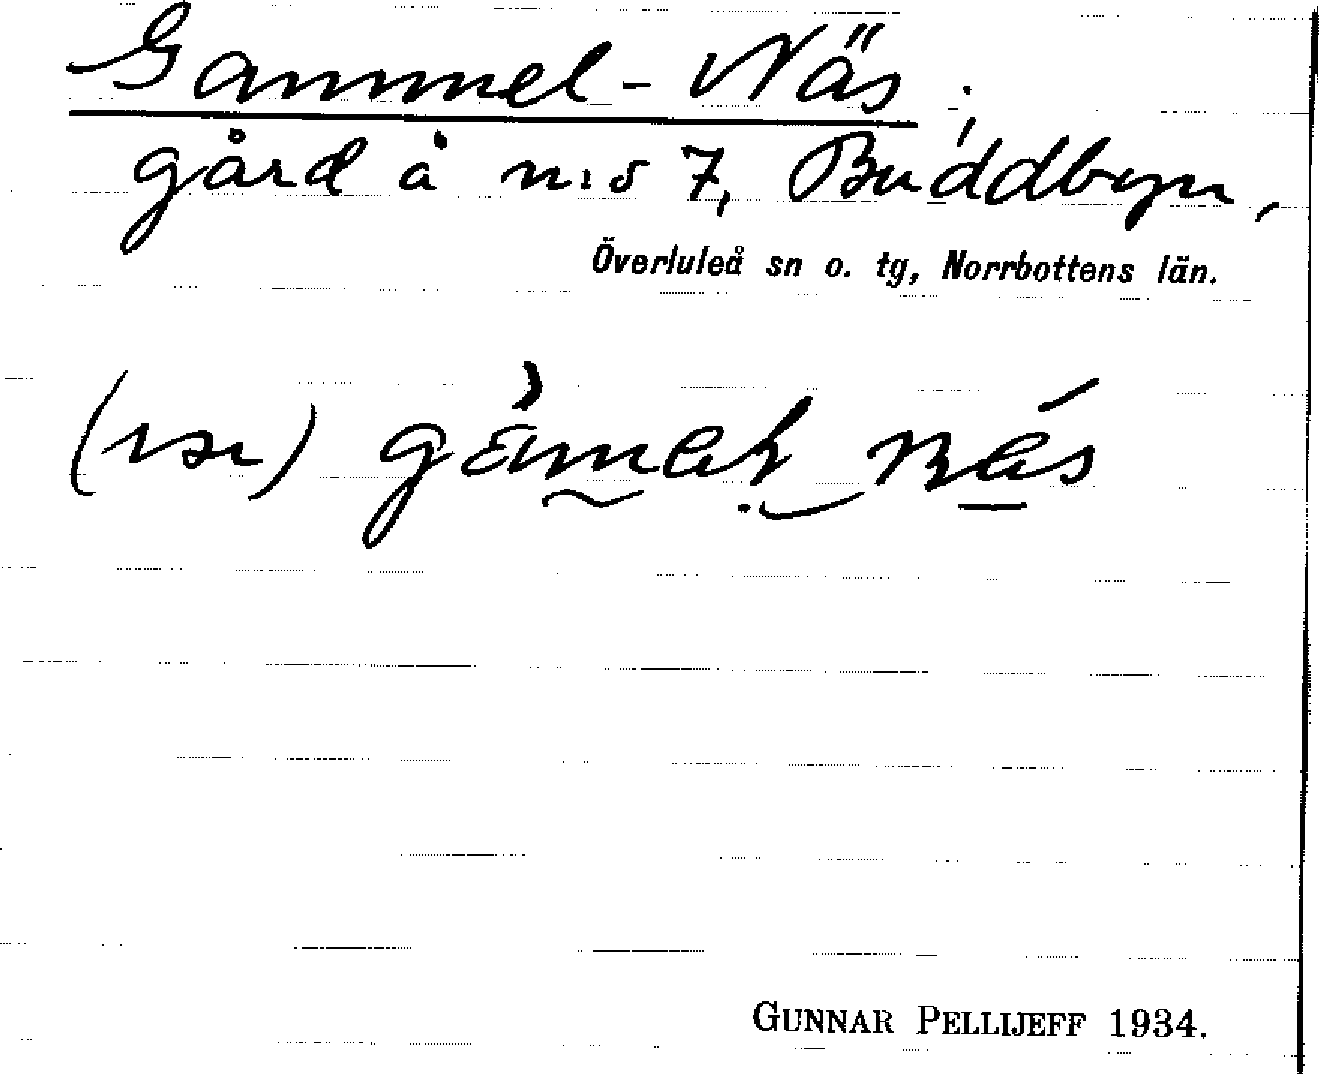 Gammel-Näs,
gård å n:o 7, Buddbyn,
Överluleå sn o. tg, Norrbottens län.
GUNNAR PELLIJEFF 1934.